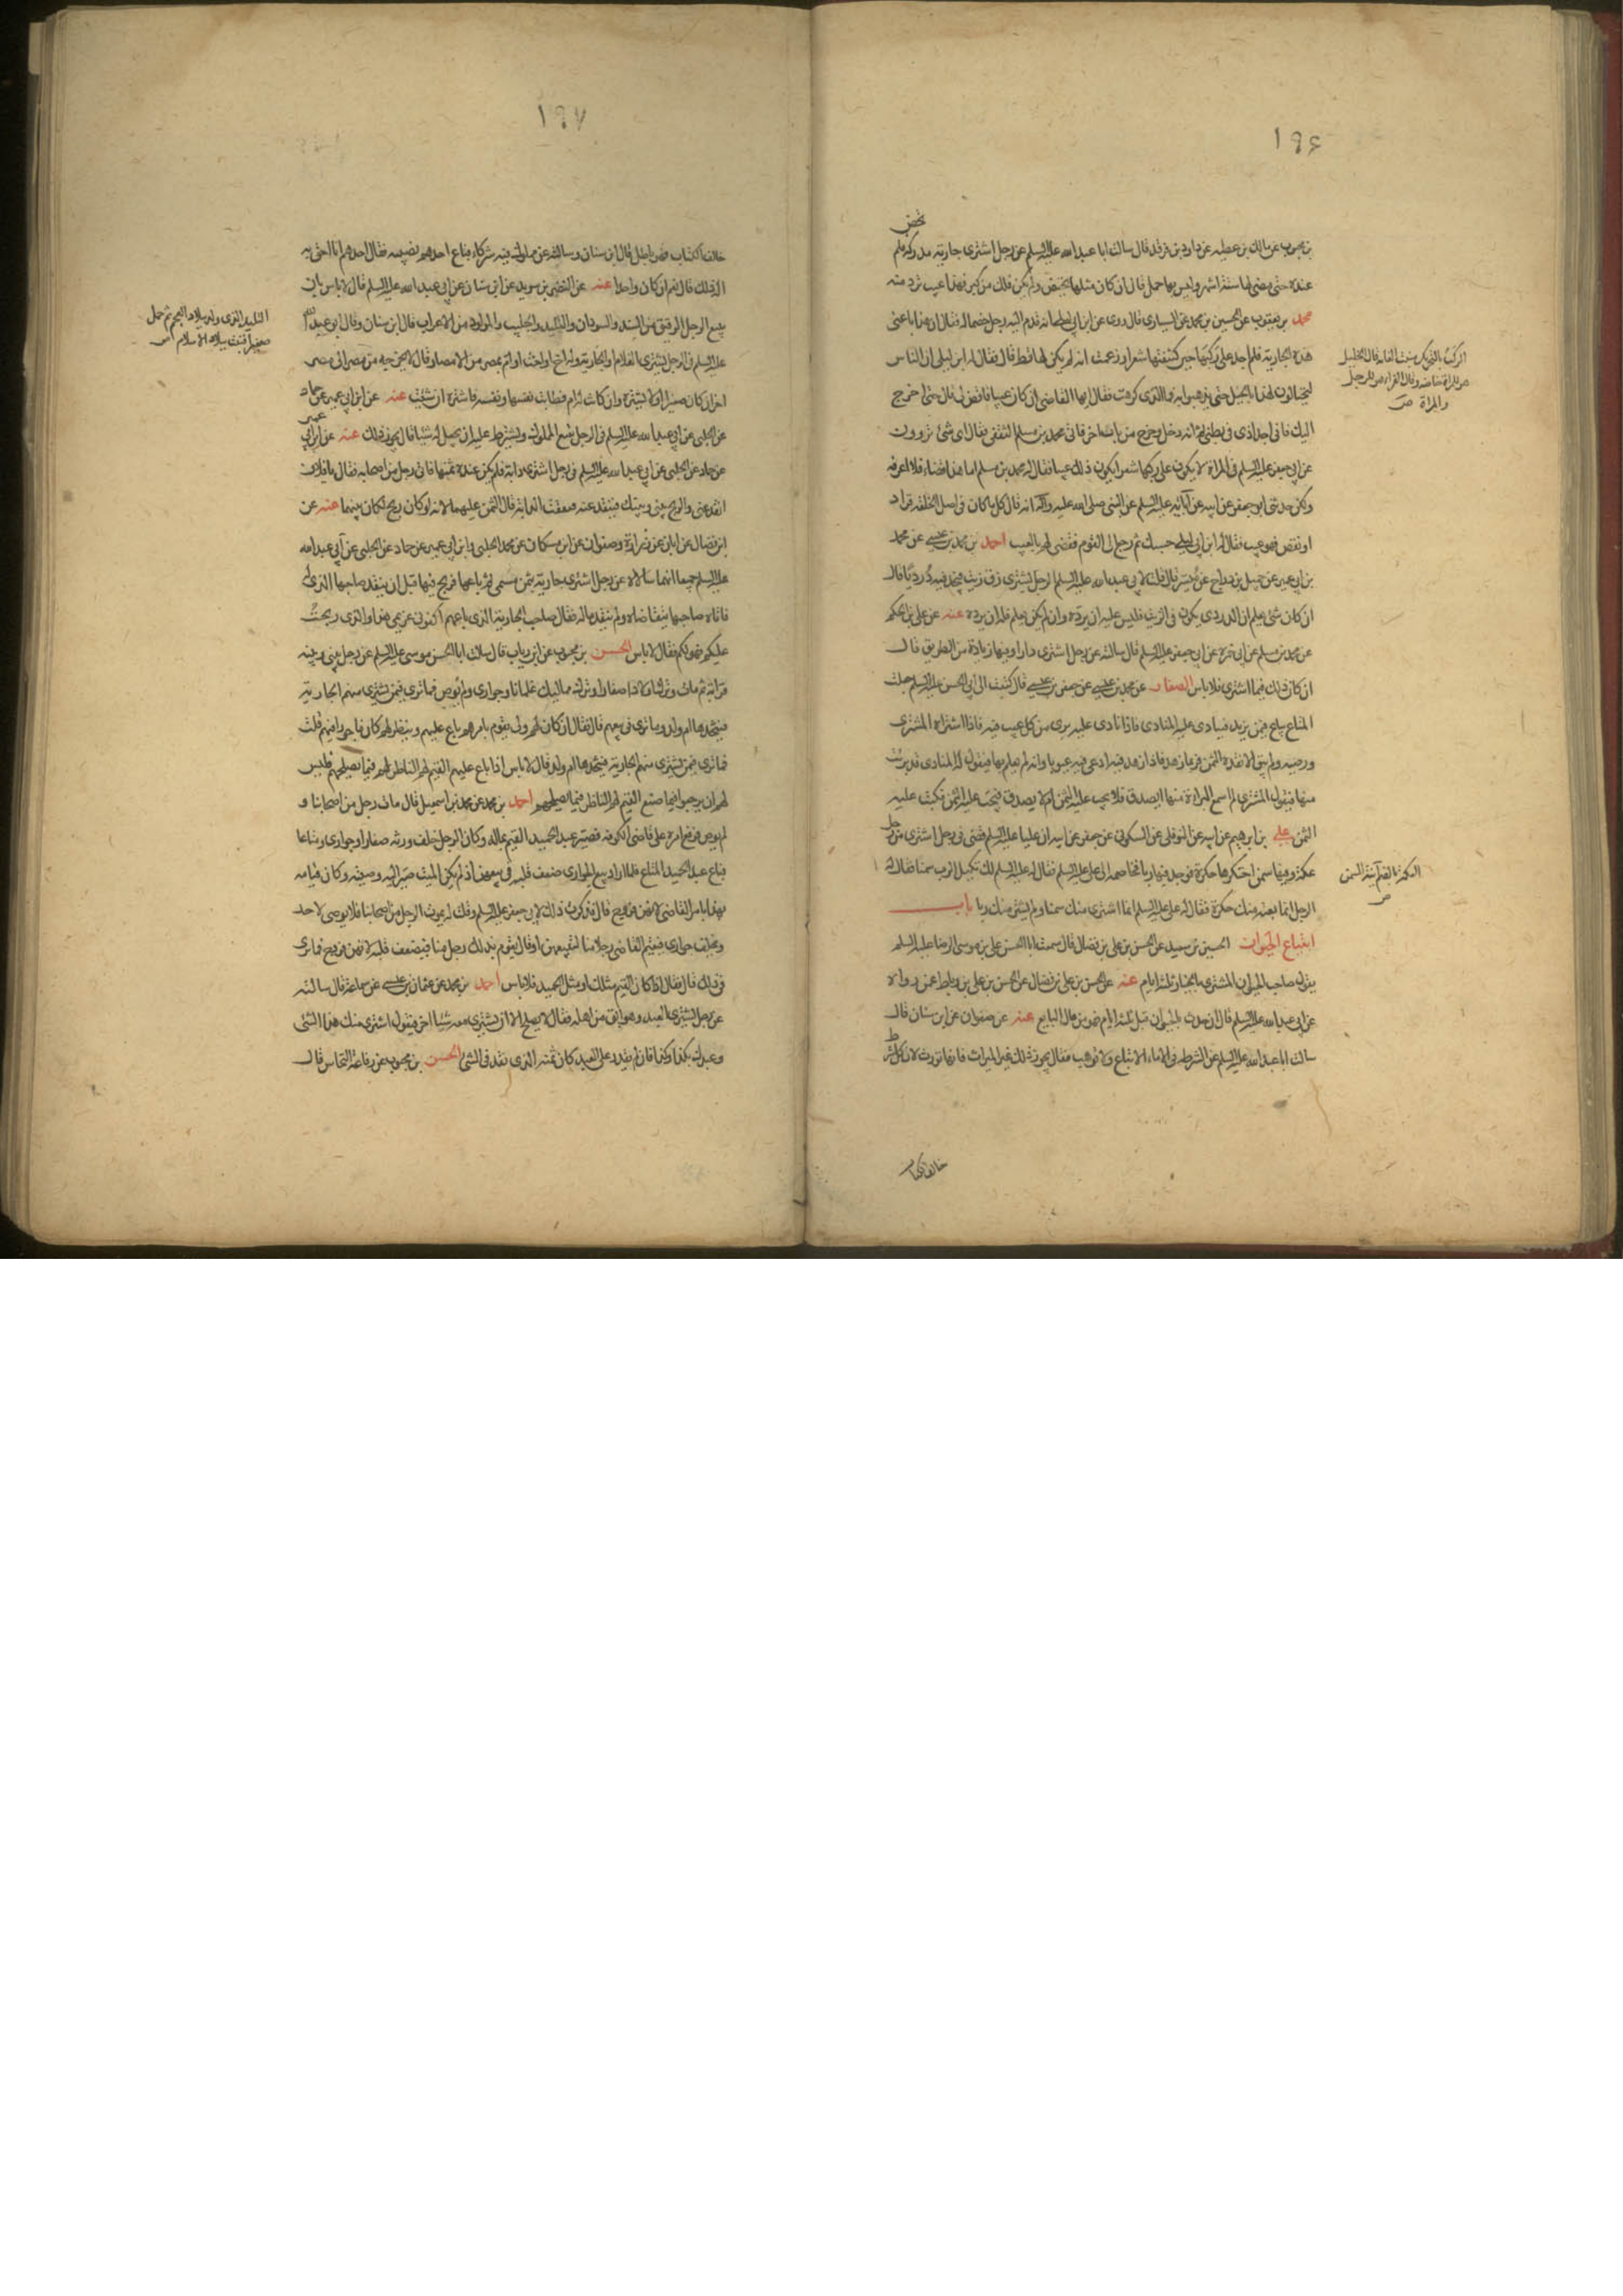 ١٩٦
تحض
بن محبوب عن مالك بن عطيه عن داود بن فرقد قال سالت ابا عبد الله عليه السلم عن رجل اشترى جارية مدركة فلم
عنده حتى مضى لها ستة اشهر وليس بها حمل قال ان كان مثلها تحيض ولم يكن ذلك من كبر فهذا عيب ترد منه
محمد بن يعقوب عن الحسين بن محمد عن السيارى قال روى عن ابن ابى ليلى انه قدم اليه رجل خصما له فقال ان هذا باعنى
هذه الجارية فلم اجد على ركبها حين كشفتها شعرا وزعمت انه لم يكن لها قط قال فقال له ابن ابى ليلى ان الناس
ليحتالون لهذا بالحيل حتى يذهبوا به فما الذى كرهت فقال ايها القاضى ان كان عيبا فاقض لى قال حتى اخرج
اليك فانى اجد اذى فى بطنى ثم انه دخل وخرج من باب اخر فاتى محمد بن مسلم الثقفى فقال اى شئ تروون
عن ابى جعفر عليه السلم فى المراة لا يكون على ركبها شعر ايكون ذلك عيبا فقال له محمد بن مسلم اما هذا نصا فلا اعرفه
ولكن حدثنى ابو جعفر عن ابيه عن آبائه عليه السلم عن النبى صلى الله عليه وآله انه قال كل ما كان فى اصل الخلقة فزاد
او نقص فهو عيب فقال له ابن ابى ليلى حسبك ثم رجع الى القوم فقضى لهم بالعيب احمد بن محمد بن عيسى عن محمد
بن ابى عمير عن جميل بن دراج عن ميسر قال قلت لابى عبد الله عليه السلم الرجل يشترى زق زيت فيجد فيه درديا قال
ان كان شئ يعلم ان الدردى يكون فى الزيت فليس عليه ان يرده وان لم يكن يعلم فله ان يرده عنه عن على بن الحكم
عن محمد بن مسلم عن ابى جعفر عليه السلم قال سالته عن رجل اشترى دارا وفيها زيادة من الطريق قال
ان كان ذلك فيما اشترى فلا باس الصفار عن محمد بن عيسى عن جعفر بن عيسى قال كتبت الى ابى الحسن عليه السلم جعلت
المتاع يباع فيمن يزيد فينادى عليه المنادى فاذا نادى عليه برى من كل عيب فيه فاذا اشتراه المشترى
ورضيه ولم يبق الا نقده الثمن فربما زهد فاذا زهد فيه ادعى فيه عيوبا وانه لم يعلم بها فيقول له المنادى قد برئت
منها فيقول المشترى لم اسمع البراءة منها ايصدق فلا يجب عليه الثمن ام لا يصدق فيجب عليه الثمن فكتب عليه
الثمن على بن ابرهيم عن ابيه عن النوفلى عن السكونى عن جعفر عن ابيه ان عليا عليه السلم قضى فى رجل اشترى من رجل
عكة وفيها سمن احتكرها حكرة فوجد فيها ربا فخاصمه الى على عليه السلم فقال له على عليه السلم لك بكيل الرب سمنا فقال له
الرجل انما بعته منك حكرة فقال له على عليه السلم انما اشترى منك سمنا ولم يشتر منك ربا باب
ابتياع الحيوان الحسين بن سعيد عن الحسن بن على بن فضال قال سمعت ابا الحسن على بن موسى الرضا عليه السلم
يقول صاحب الحيوان المشترى بالخيار ثلثة ايام عنه عن الحسن بن على بن فضال عن الحسن بن على بن رباط عمن رواه
عن ابى عبد الله عليه السلم قال ان حدث بالحيوان قبل ثلثة ايام فهو من مال البايع عنه عن صفوان عن ابن سنان قال
سالت ابا عبد الله عليه السلم عن الشرط فى الاماء الا تباع ولا توهب فقال يجوز ذلك غير الميراث فانها تورث لان كل شرط
خالف الكتاب
الركب بالتحريك منبت العانه قال الخليل
هو للمراة خاصه وقال الفراء هو للرجل
والمراة ص
العكة بالضم آنية السمن
ص
١٩٧
خالف الكتاب فهو باطل قال ابن سنان وسالته عن مملوك فيه شركاء فباع احدهم نصيبه فقال احدهم انا احق به
اله ذلك قال نعم ان كان واحدا عنه عن النضر بن سويد عن ابن سنان عن ابى عبد الله عليه السلم قال لا باس بان
يبيع الرجل الرقيق من السند والسودان والتليد والجليب والمولود من الاعراب قال ابن سنان وقال ابو عبد الله
عليه السلم فى الرجل يشترى الغلام والجارية وله اخ او اخت او ام بمصر من الامصار قال لا يخرجه من مصر الى مصر
اخر ان كان صغيرا ولا يشتره وان كانت له ام فطابت نفسها ونفسه فاشتره ان شئت عنه عن ابن ابى عمير عن حماد
عن الحلبى عن ابى عبد الله عليه السلم فى الرجل يبيع المملوك ويشترط عليه ان يجعل له شيئا قال يجوز ذلك عنه عن ابن ابى عمير
عن حماد عن الحلبى عن ابى عبد الله عليه السلم فى رجل اشترى دابة فلم يكن عنده ثمنها فاتى رجل من اصحابه فقال يا فلان
انقد عنى والربح بينى وبينك فينقد عنه فنفقت الدابة قال الثمن عليهما لانه لو كان ربح لكان بينهما عنه عن
ابن فضال عن ابان عن زرارة وصفوان عن ابن مسكان عن محمد الحلبى وابن ابى عمير عن حماد عن الحلبى عن ابى عبد الله
عليه السلم جميعا انهما سالاه عن رجل اشترى جارية بثمن مسمى ثم باعها فربح فيها قبل ان ينقد صاحبها الذى له
فاتاه صاحبها يتقاضاه ولم ينقد ماله فقال صاحب الجارية الذى باعهم اكفونى غريمى هذا والذى ربحت
عليكم فهو لكم فقال لا باس الحسن بن محبوب عن ابن رياب قال سالت ابا الحسن موسى عليه السلم عن رجل بينى وبينه
قرابة مات وترك اولادا صغارا وترك مماليك غلمانا وجوارى ولم يوص فما ترى فيمن يشترى منهم الجارية
فيتخذها ام ولد وما ترى فى بيعهم قال فقال ان كان لهم ولى يقوم بامرهم باع عليهم وينظر لهم كان ماجورا فيهم قلت
فما ترى فيمن يشترى منهم الجارية فيتخذها ام ولد قال لا باس اذا باع عليهم القيم لهم الناظر لهم فيما يصلحهم فليس
لهم ان يرجعوا فيما صنع القيم لهم الناظر فيما يصلحهم احمد بن محمد عن محمد بن اسمعيل قال مات رجل من اصحابنا و
لم يوص فرفع امره على قاضى الكوفه فصير عبد الحميد القيم بماله وكان الرجل خلف ورثه صغارا وجوارى ومتاعا
فباع عبد الحميد المتاع فلما اراد بيع الجوارى ضعف قلبه فى بيعهن اذ لم يكن الميت صير اليه وصيته وكان قيامه
بهذا بامر القاضى لانهن فروج قال فذكرت ذلك لابى جعفر عليه السلم وقلت له يموت الرجل من اصحابنا فلا يوصى لاحد
ويخلف جوارى فيقيم القاضى رجلا منا لبيعهن او قال يقوم بذلك رجل منا فيضعف قلبه لانهن فروج فما ترى
فى ذلك قال فقال اذا كان القيم مثلك او مثل عبد الحميد فلا باس احمد بن محمد عن عثمان بن عيسى عن سماعة قال سالته
عن رجل يشترى العبد وهو ابق من اهله فقال لا يصلح الا ان يشترى معه شيئا اخر فيقول اشترى منك هذا الشئ
وعبدك بكذا وكذا فان لم يقدر على العبد كان ثمنه الذى نقد فى الشئ الحسن بن محبوب عن رفاعة النخاس قال
التليد الذى ولد ببلاد العجم ثم حمل
صغيرا فثبت ببلاد الاسلام